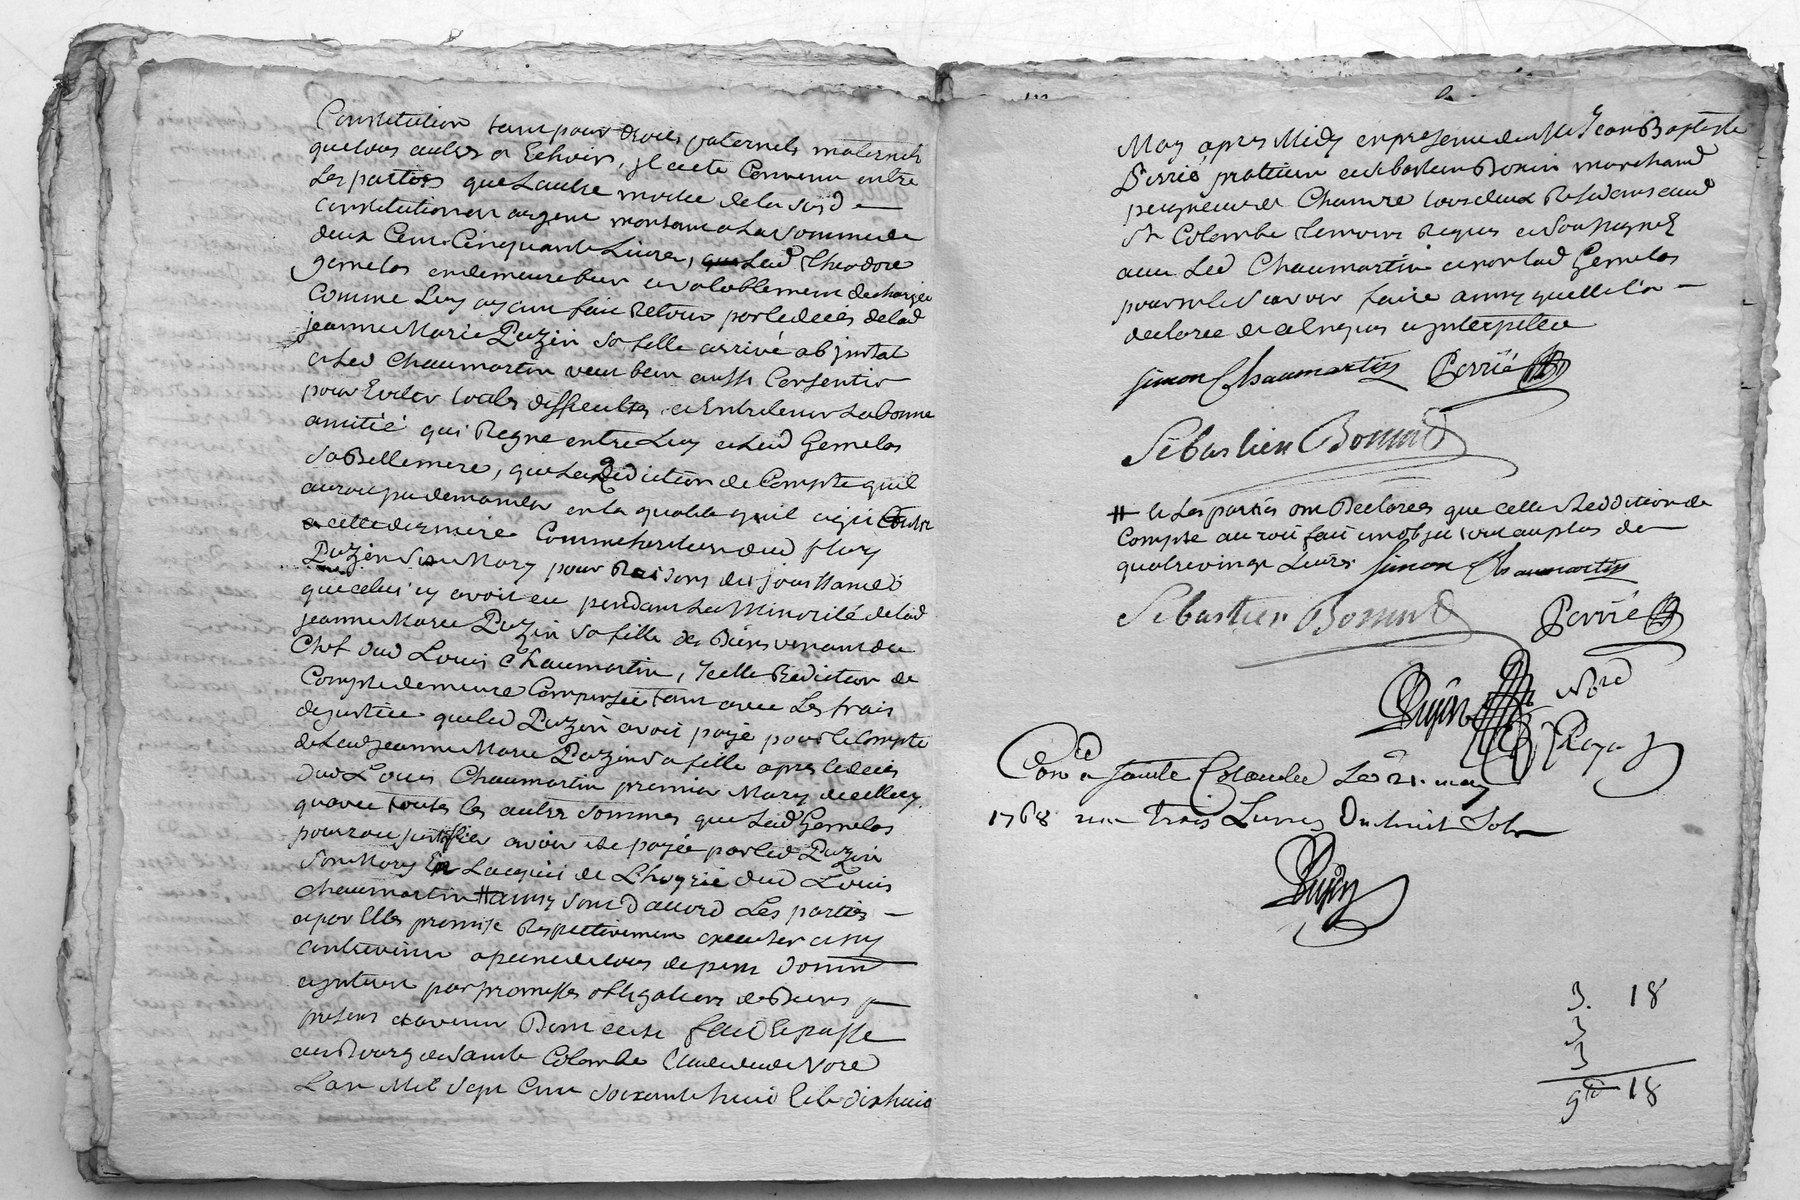 Constitution tant pour droits paternels maternels
que tous autres a Echoir, jl a ete Convenu entre
Les parties que Lautre moitié de la susd
constitution en argent montant a La Somme de
deux Cent Cinquante Livres, Lad Theodore
Gemelas en demeure bien et valablement dechargée
Comme Luy ayant fait Retour par le deces de lad
jeanne Marie Puzin sa fille arrivé ab jntestat
et Led Chaumartin veut bien aussi Consentir
pour Eviter toutes difficultes et Entretenir La bonne
amitié qui Regne entre Luy et Lad Gemelas
sa Bellemere, que La Rediction de Compte quil
auroit pu demander en la qualité quil agit Contre
cette derniere Comme heritiere dud fleury
Puzin son Mary pour Raisons des jouissances
que celui cy avoit eu pendant La Minorité de lad
jeanne Marie Puzin sa fille des Biens venant du
Chef dud Louis Chaumartin, Jcelle Rediction de
Compte demeure Compensée tant avec Les frais
de justice que led Puzin avoit payé pour le Compte
de Lad jeanne Marie Puzin sa fille apres le deces
dud Louis Chaumartin premier Mary dicelle
quavec toutes les autres sommes que Lad Gemelas
pourroit justifier avoir ete payée par led Puzin
son Mary En Lacquis de Lhoyrie dud Louis
chaumartin # ainsy sont daccord Les parties
et par Elles promis Respectivement executer et ny
contrevenir a peine de tous depens domm
et jnterets par promesses obligations de Biens
presens et avenir Dont acte fait et passé
au Bourg de Sainte Colombe Etude dud Nore
Lan Mil Sept Cent soixante huit et le dix huit
May apres Midy en presence de Me Jean Baptiste
Perrié praticien et Sebastien Bonin marchand
peigneur de Chanvre tous deux Residants aud
Ste Colombe temoins Requis et Soussignez
avec Led Chaumartin et non lad Gemelas
pour ne le scavoir faire ainsy quelle la
declarée de ce Enquis et jnterpellée
Simon Chaumartin Perrié
Sebastien Bonin
# et Les parties ont Declarées que cette Reddition de
Compte auroit fait un objet tout au plus de
quatrevingt Livres Simon Chaumartin
Sebastien Bonin Perrié
Nore
Royal
Con a Sainte Colombe Le 21 may
1768 Trois Livres Dix huit Sols
3. 18
3
3
9 18